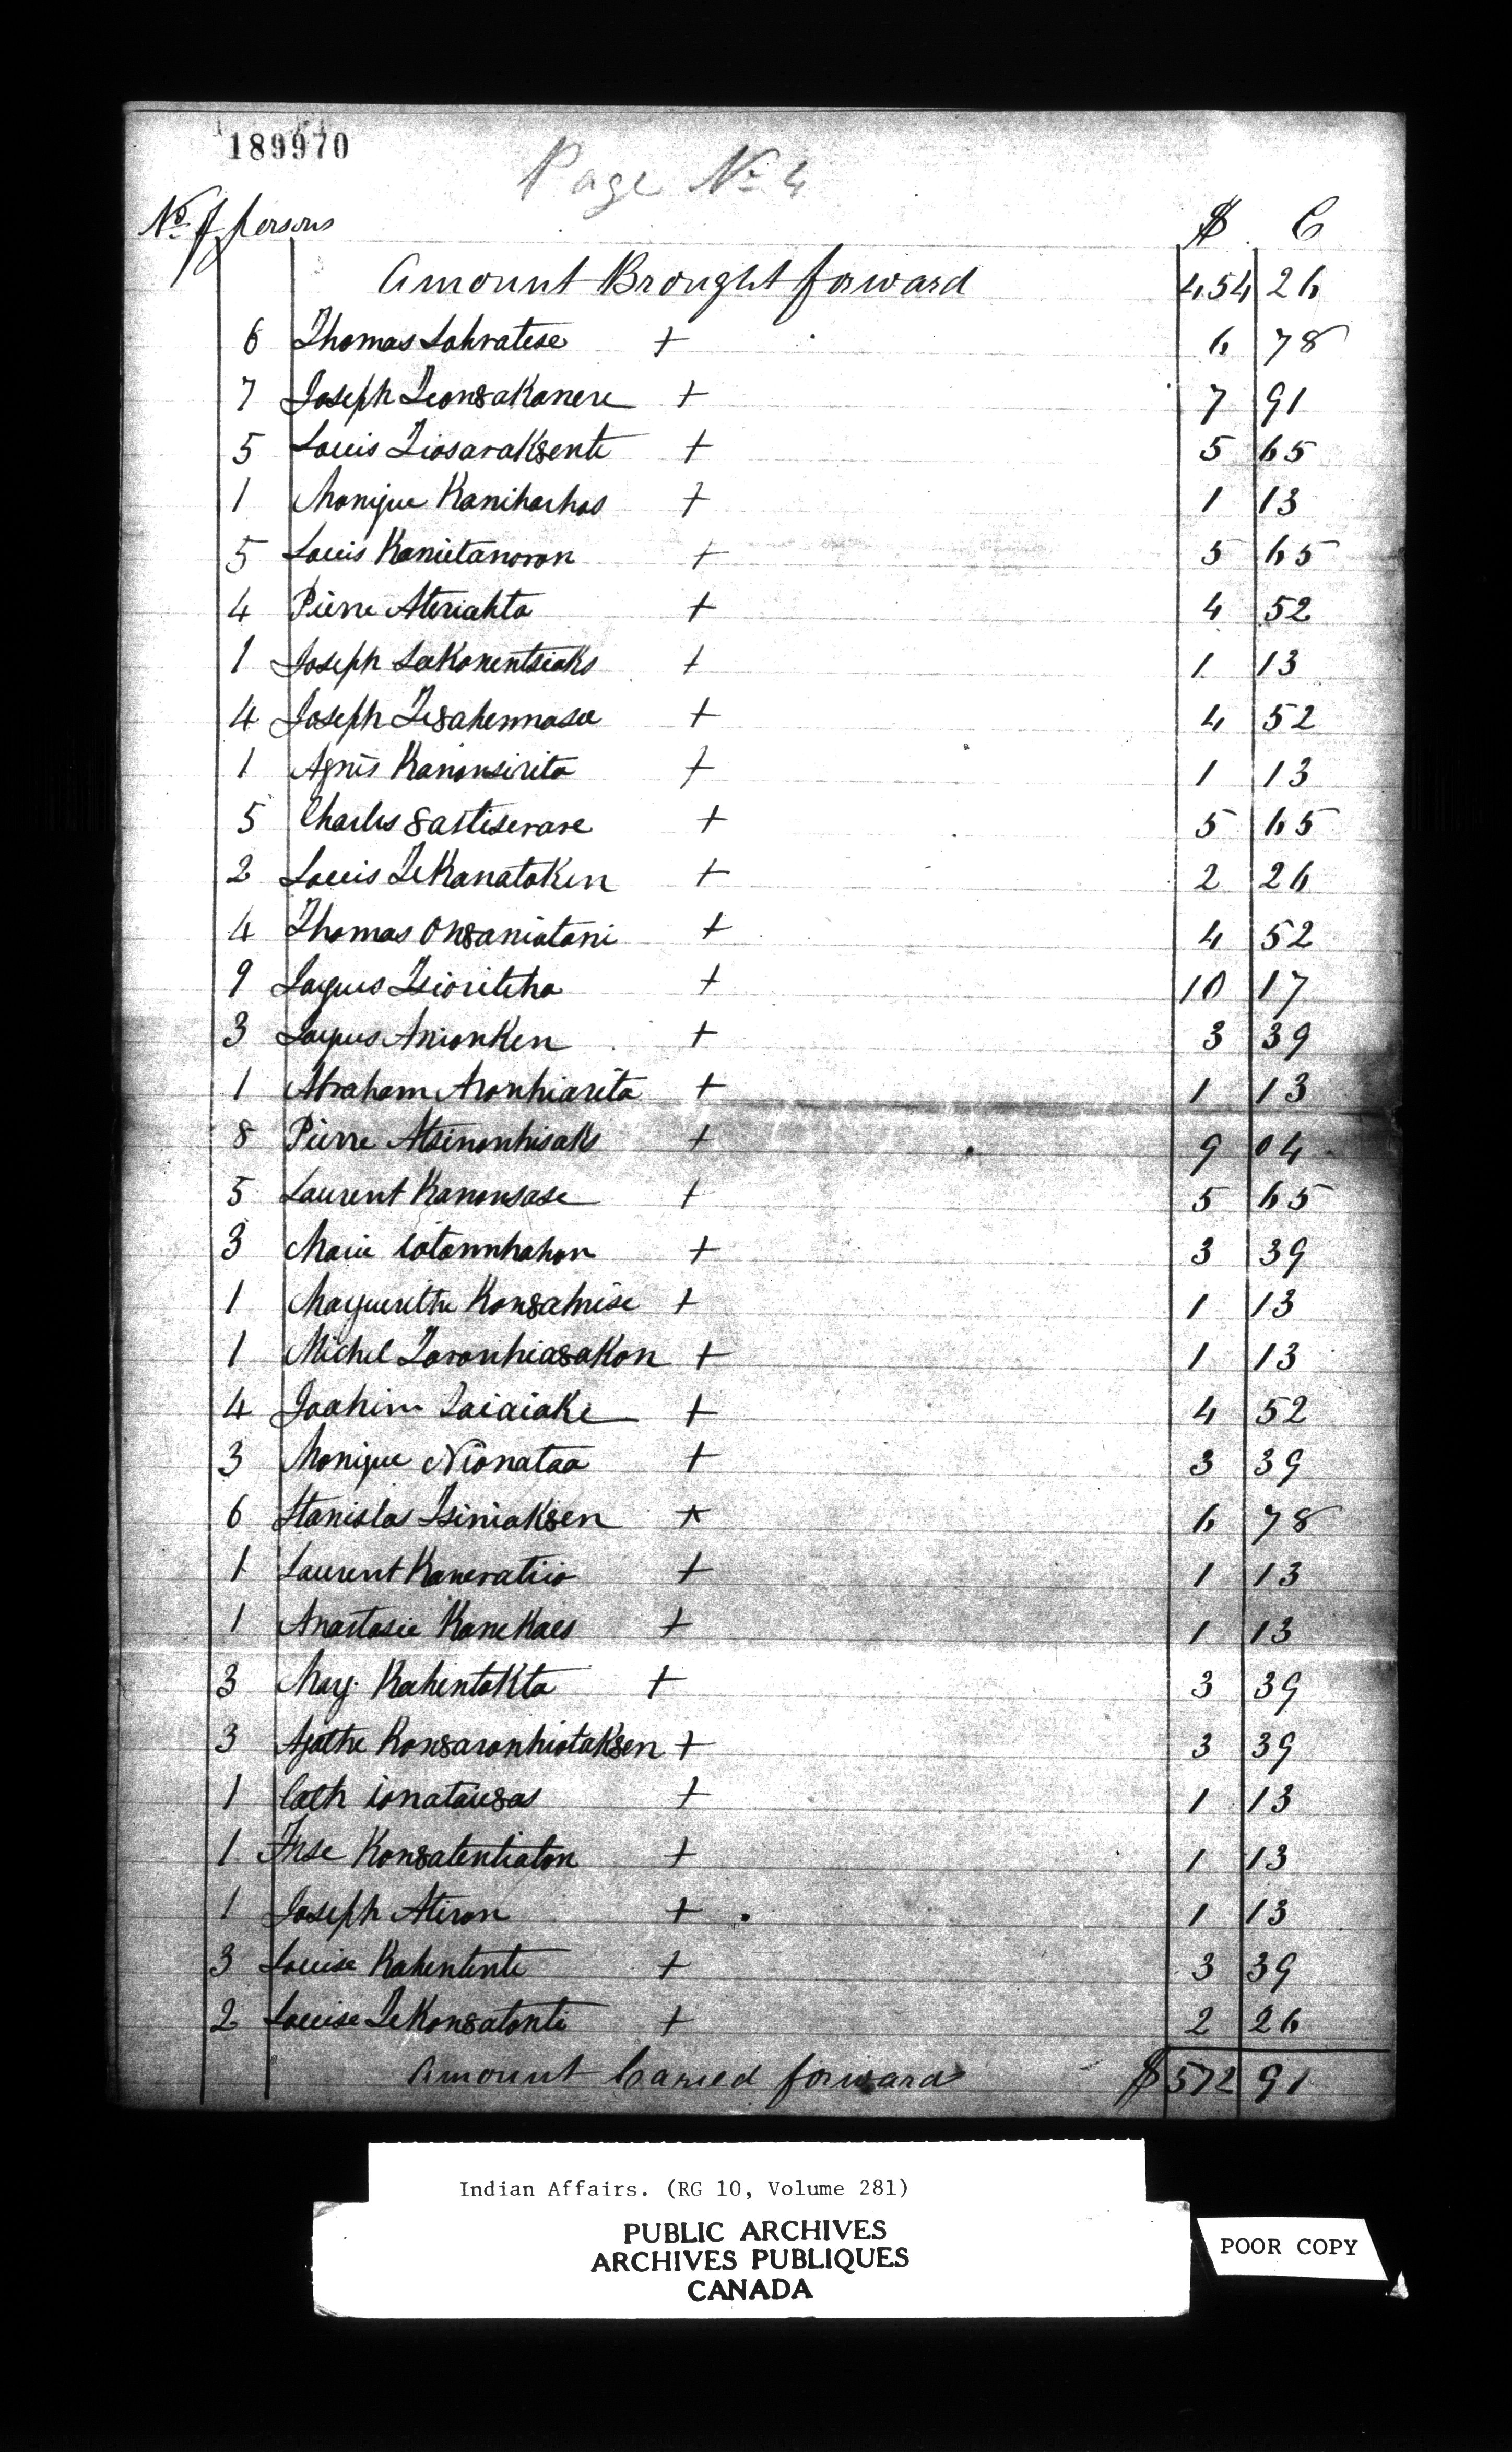 189970
Page No 4
No of persons $ C
Amount Brought forward 454 26
6 Thomas Sohratese + 6 78
7 Joseph Teon8aKanere + 7 91
5 Louis TiosaraK8ente + 5 65
1 Monique Kaniharhos + 1 13
5 Louis Kanietanoron + 5 65
4 Pierre Ateriahta + 4 52
1 Joseph SaKonentsiaks + 1 13
4 Joseph Te8ahennasee + 4 52
1 Agnis Kanonsirita + 1 13
5 Charles 8astiserare + 5 65
2 Louis TeKanatoKen + 2 26
4 Thomas On8aniatani + 4 52
9 Jaques Tsioriteha + 10 17
3 Jaques AnionKen + 3 39
1 Abraham Aronhiarita + 1 13
8 Pierre Atsinonhisaks + 9 04
5 Laurent Kanonsase + 5 65
3 Marie iotannhahon + 3 39
1 Marguerithe Kon8ahrise + 1 13
1 Michel Taronhia8aKon + 1 13
4 Joahim Taiaiake + 4 52
3 Monique Nionataa + 3 39
6 Stanislas TsiniaK8en + 6 78
1 Laurent Kaneratiio + 1 13
1 Anastasie KaneKaes + 1 13
3 Marg. KahentoKta + 3 39
3 Agathe Kon8aronhiotaK8en + 3 39
1 Cath ionatau8as + 1 13
1 Thse Kon8atentiaton + 1 13
1 Joseph Atiron + 1 13
3 Louise Kahentente + 3 39
2 Louise TeKon8atonti + 2 26
Amount Carried forward $ 572 91
Indian Affairs. (RG 10, Volume 281)
PUBLIC ARCHIVES
ARCHIVES PUBLIQUES
CANADA
POOR COPY